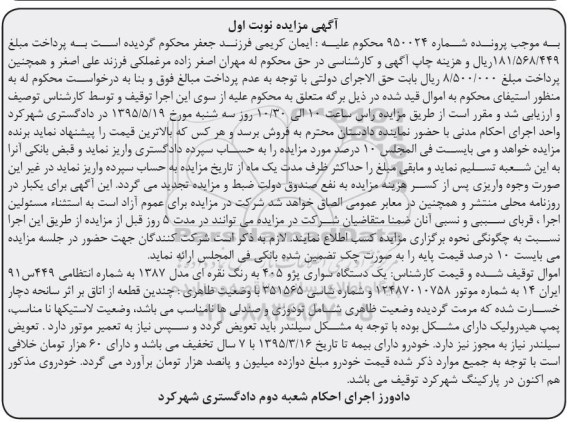 آگهی مزایده نوبت اول
به موجب پرونده شماره ۹۵۰۰۲۴ محکوم علیه : ایمان کریمی فرزند جعفر محکوم گردیده است به پرداخت مبلغ
۱۸۱/۵۶۸/۴۴۹ریال و هزینه چاپ آگهی و کارشناسی در حق محکوم له مهران اصغر زاده مرغملکی فرزند علی اصغر و همچنین
پرداخت مبلغ ۸/۵۰۰/۰۰۰ ریال بابت حق الاجرای دولتی با توجه به عدم پرداخت مبالغ فوق و بنا به درخواست محکوم له به
منظور استیفای محکوم به اموال قید شده در ذیل برگه متعلق به محکوم علیه از سوی این اجرا توقیف و توسط کارشناس توصیف
و ارزیابی شد و مقرر است از طریق مزایده راس ساعت ۱۰ الی ۱۰/۳۰ روز سه شنبه مورخ ۱۳۹۵/۵/۱۹ در دادگستری شهرکرد
واحد اجرای احکام مدنی با حضور نماینده دادستان محترم به فروش برسد و هر کس که بالاترین قیمت را پیشنهاد نماید برنده
مزایده خواهد و می بایست فی المجلس ۱۰ درصد مورد مزایده را به حساب سپرده دادگستری واریز نماید و قبض بانکی آنرا
به این شعبه تسلیم نماید و مابقی مبلغ را حداکثر ظرف مدت یک ماه از تاریخ مزایده به حساب سپرده واریز نماید در غیر این
صورت وجوه واریزی پس از کسر هزینه مزایده به نفع صندوق دولت ضبط و مزایده تجدید می گردد. این آگهی برای یکبار در
روزنامه محلی منتشر و همچنین در معابر عمومی الصاق خواهد شد شرکت در مزایده برای عموم آزاد است به استثناء مسئولین
اجرا ، قربای سببی و نسبی آنان ضمنا متقاضیان شرکت در مزایده می توانند در مدت ۵ روز قبل از مزایده از طریق این اجرا
نسبت به چگونگی نحوه برگزاری مزایده کسب اطلاع نمایند. لازم به ذکر است شرکت کنندگان جهت حضور در جلسه مزایده
می بایست ۱۰ درصد قیمت پایه را به صورت چک تضمین شده بانکی فی المجلس ارائه نماید.
اموال توقیف شده و قیمت کارشناس: یک دستگاه سواری پژو ۴۰۵ به رنگ نقره ای مدل ۱۳۸۷ به شماره انتظامی ۴۴۹س۹۱
ایران ۱۴ به شماره موتور ۱۲۴۸۷۰۱۰۷۵۸ و شماره شاسی ۳۵۱۵۶۵ با وضعیت ظاهری: چندین قطعه از اتاق بر اثر سانحه دچار
خسارت شده که مرمت گردیده وضعیت ظاهری شامل تودوزی و صندلی ها نامناسب می باشد، وضعیت لاستیکها نا مناسب،
پمپ هیدرولیک دارای مشکل بوده با توجه به مشکل سیلندر باید تعویض گردد و سپس نیاز به تعمیر موتور دارد . تعویض
سیلندر نیاز به مجوز نیز دارد. خودرو دارای بیمه تا تاریخ ۱۳۹۵/۳/۱۶ با ۷ سال تخفیف می باشد و دارای ۶۰ هزار تومان خلافی
است با توجه به جمیع موارد ذکر شده قیمت خودرو مبلغ دوازده میلیون و پانصد هزار تومان برآورد می گردد. خودروی مذکور
هم اکنون در پارکینگ شهرکرد توقیف می باشد.
دادورز اجرای احکام شعبه دوم دادگستری شهرکرد